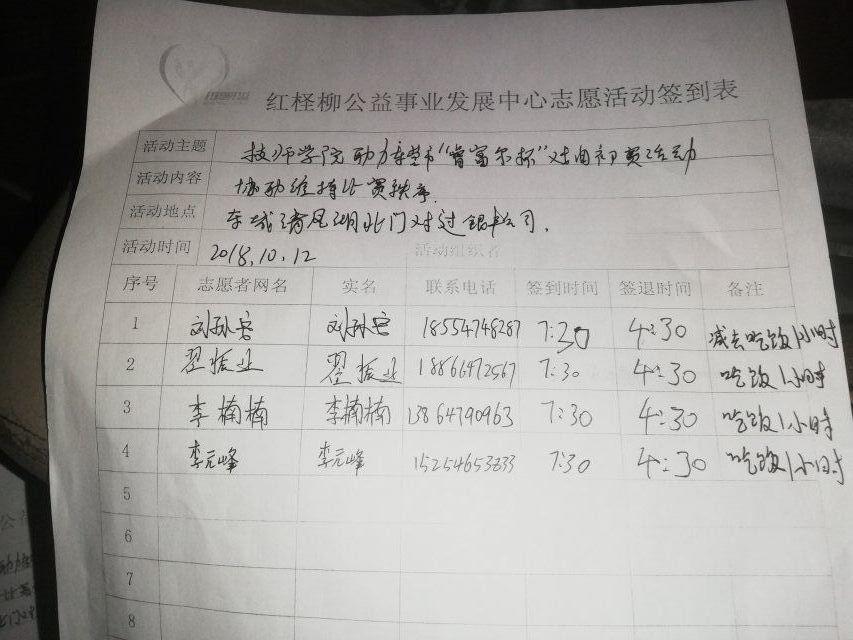 红柽柳公益事业发展中心志愿活动签到表
活动主题 技师学院助力东营市“肯富尔杯”
活动内容 协助维持比赛秩序.
活动地点 东城清风湖北门对过银丰公司.
活动时间 2018.10.12 活动组织者
序号 志愿者网名 实名 联系电话 签到时间 签退时间 备注
1 刘孙 刘孙 18554748287 7:30 4:30 减去吃饭1小时
2 翟振业 翟振业 18866472567 7:30 4:30 吃饭1小时
3 李楠楠 李楠楠 13864790963 7:30 4:30 吃饭1小时
4 李元峰 李元峰 15254653833 7:30 4:30 吃饭1小时
5
6
7
8